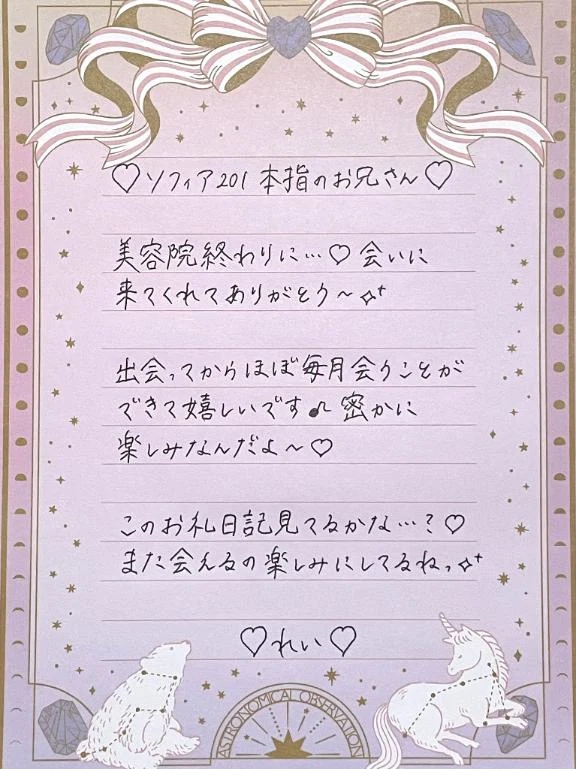 ♡ソフィア201 本指のお兄さん♡
美容院終わりに…♡ 会いに
来てくれてありがとう〜✧⁺
出会ってからほぼ毎月会うことが
できて嬉しいです♪ 密かに
楽しみなんだよ〜♡
このお礼日記見てるかな…?♡
また会えるの楽しみにしてるねっ✧⁺
♡れい♡
ASTRONOMICAL OBSERVATION